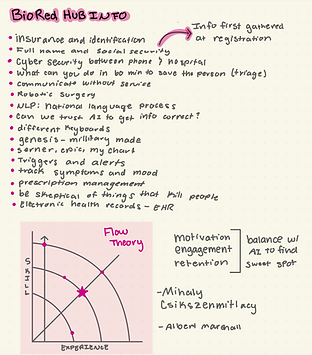 BioRed HUB INFO
Info first gathered
at registration
• insurance and identification
• Full name and social security
• Cyber security between phone & hospital
• what can you do in 60 min to save the person (triage)
• communicate without service
• Robotic surgery
• NLP: National language process
• can we trust AI to get info correct?
• different keyboards
• genesis - millitary made
• serner, epic, my chart
• Triggers and alerts
• track symptoms and mood
• prescription management
• be skeptical of things that kill people
• Electronic health records - EHR
Flow
Theory
SKILL
EXPERIENCE
motivation
engagement
retention
balance w/
AI to find
sweet spot
- Mihaly
Csikszenmitlacy
- Albert marshall